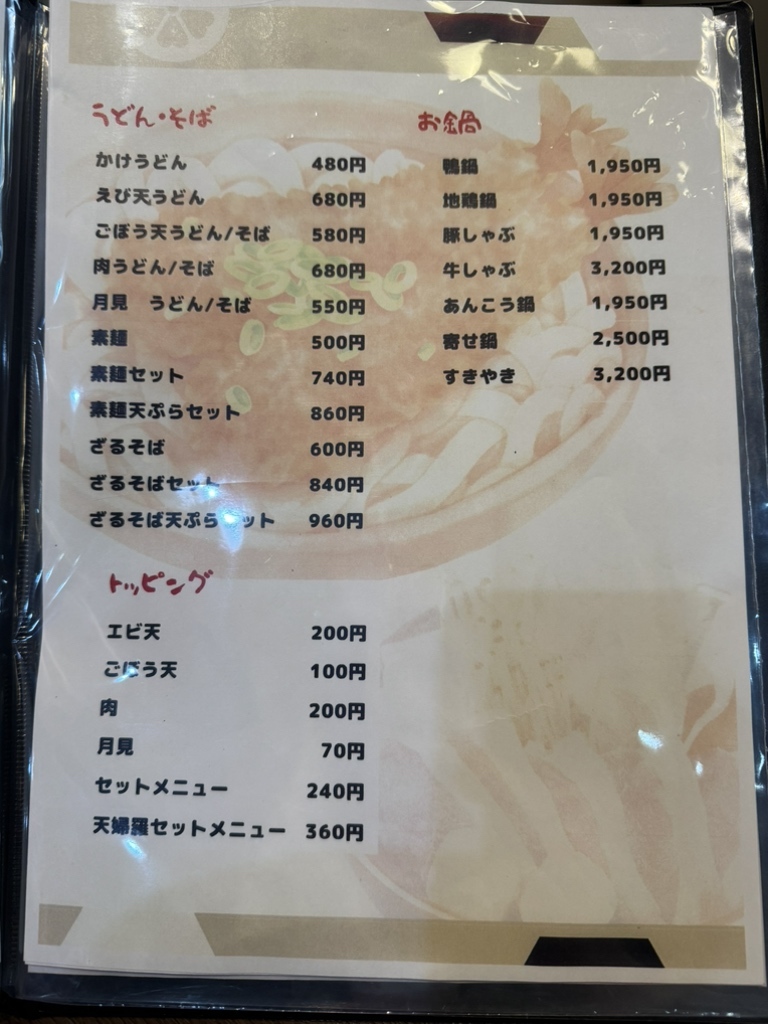 うどん・そば
かけうどん 480円
えび天うどん 680円
ごぼう天うどん/そば 580円
肉うどん/そば 680円
月見 うどん/そば 550円
素麺 500円
素麺セット 740円
素麺天ぷらセット 860円
ざるそば 600円
ざるそばセット 840円
ざるそば天ぷらセット 960円
トッピング
エビ天 200円
ごぼう天 100円
肉 200円
月見 70円
セットメニュー 240円
天婦羅セットメニュー 360円
お鍋
鴨鍋 1,950円
地鶏鍋 1,950円
豚しゃぶ 1,950円
牛しゃぶ 3,200円
あんこう鍋 1,950円
寄せ鍋 2,500円
すきやき 3,200円